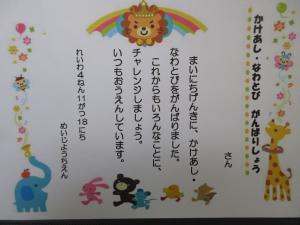 かけあし・なわとび がんばりしょう
さん
まいにちげんきに、かけあし・
なわとびをがんばりました。
これからもいろんなことに、
チャレンジしましょう。
いつもおうえんしています。
れいわ4ねん11がつ18にち
めいじようちえん